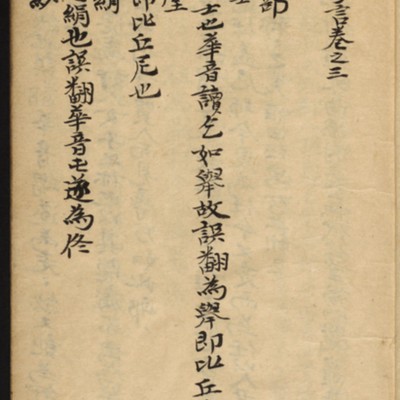 言卷之三
部
士也華音讀乞如舉故誤翻為舉即比丘
即比丘尼也
絹
絹也誤翻華音屯遂為佟